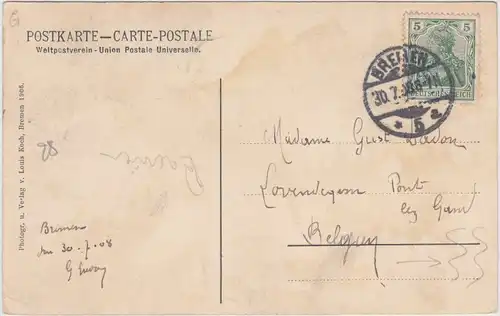 POSTKARTE—CARTE-POSTALE
Weltpostverein - Union Postale Universelle.
5 5
DEUTSCHES REICH
BREMEN
30.7.
* 5 a
Madame Gust
Lovendegem Pont
lez Gand
Belgique
28
Bremen
30-7-08
G
Photogr. u. Verlag v. Louis Koch, Bremen 1905.